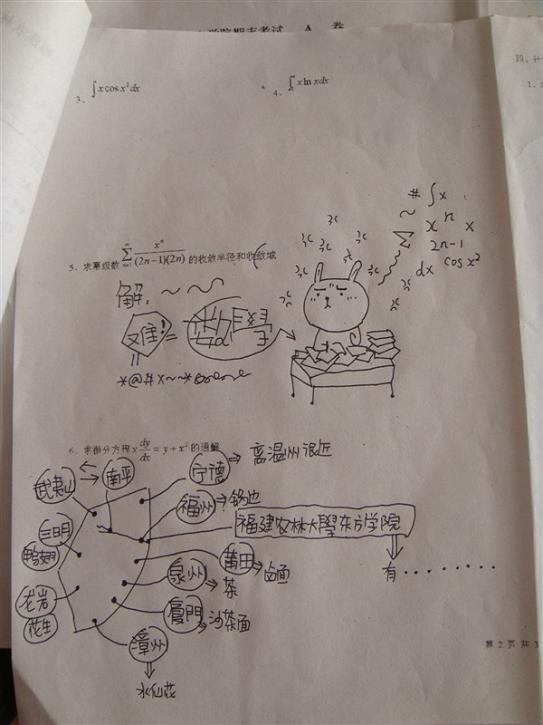 学院期末考试 A 卷
3、∫x cos x²dx
4、∫x ln xdx
四、计
1、
# ∫x
~ xⁿ x
Σ 2n-1
dx cos x²
5、求幂级数 ∑ xⁿ/(2n-1)(2n) 的收敛半径和收敛域
解：~ ~
难! =
*@#x~~*
6、求微分方程 x dy/dx = y + x² 的通解
武夷山 南平 宁德 离温州很近
福州 锅边
三明
福建农林大學东方学院
莆田 卤面
有········
泉州 茶
龙岩
花生
厦門 沙茶面
漳州
水仙花
第 2 页 共 3